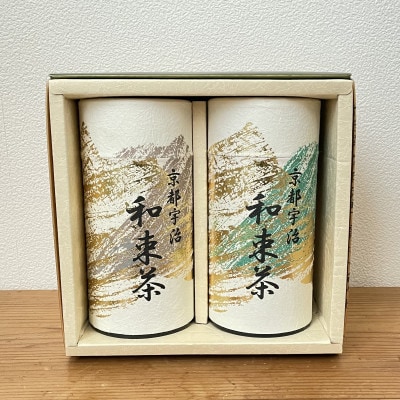 京都宇治
和束茶
京都宇治
和束茶